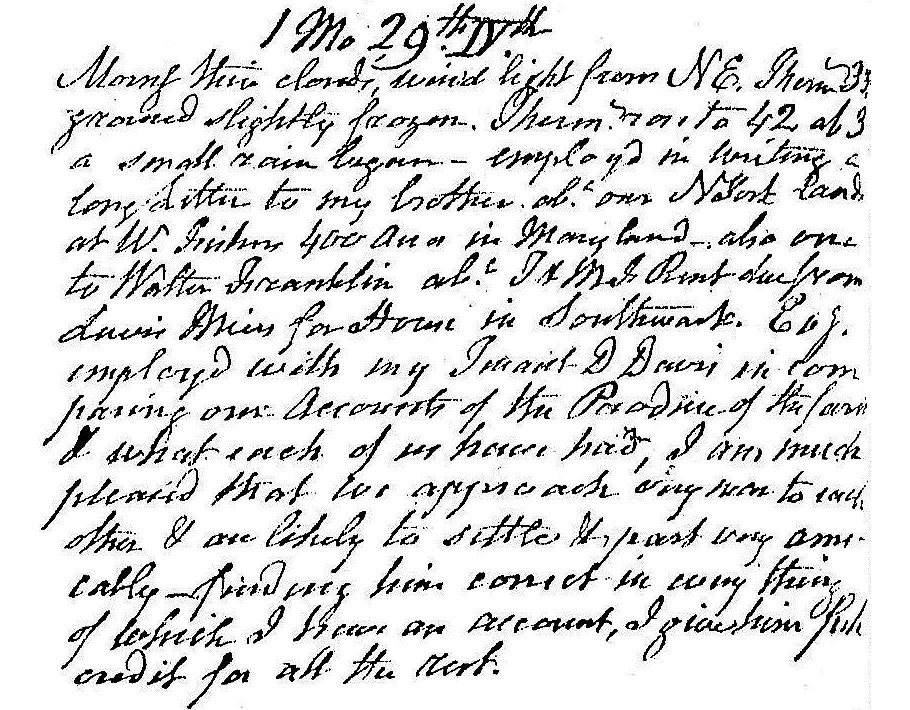 1 Mo 29th IVth
Morng thin clouds, wind light from NE. Therm 33
ground slightly frozen. Therm. rose to 42 ab 3
a small rain began - employ'd in writing a
long letter to my brother abt our NYork Land
at W. Fishers 400 Acres in Maryland - also one
to Walter Franklin abt Rent due from
Lewis for House in Southwark. Evg.
employ'd with my Tenant D Davis in com
paring our Accounts of the Produce of the farm
& what each of us have had, I am much
pleased that we approach very near to each
other & are likely to settle & part very ami-
cably - finding him correct in every thing
of which I have an account, I give him full
credit for all the rest.